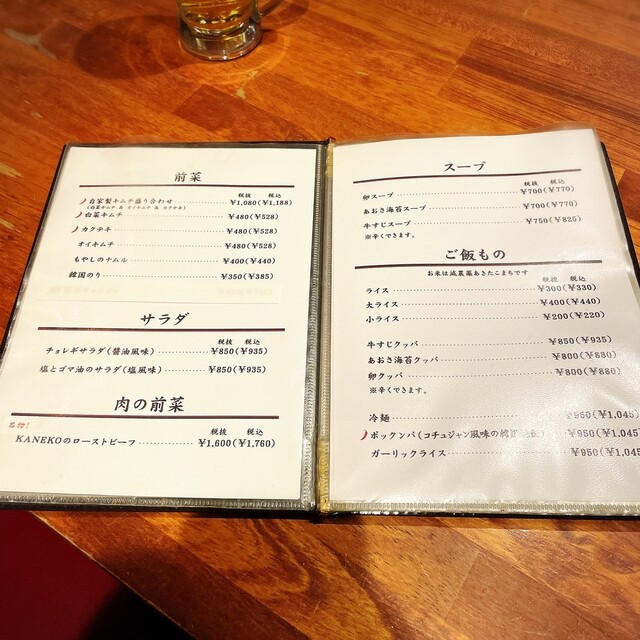 前菜
税抜 税込
自家製キムチ盛り合わせ ¥1,080(¥1,188)
(白菜キムチ & オイキムチ & カクテキ)
白菜キムチ ¥480(¥528)
カクテキ ¥480(¥528)
オイキムチ ¥480(¥528)
もやしのナムル ¥400(¥440)
韓国のり ¥350(¥385)
サラダ
税抜 税込
チョレギサラダ(醤油風味) ¥850(¥935)
塩とゴマ油のサラダ(塩風味) ¥850(¥935)
肉の前菜
税抜 税込
名物!
KANEKOのローストビーフ ¥1,600(¥1,760)
スープ
税抜 税込
卵スープ ¥700(¥770)
あおさ海苔スープ ¥700(¥770)
牛すじスープ ¥750(¥825)
※辛くできます。
ご飯もの
お米は減農薬あきたこまちです
税抜 税込
ライス ¥300(¥330)
大ライス ¥400(¥440)
小ライス ¥200(¥220)
牛すじクッパ ¥850(¥935)
あおさ海苔クッパ ¥800(¥880)
卵クッパ ¥800(¥880)
※辛くできます。
冷麺 ¥950(¥1,045
ポックンパ(コチュジャン風味の ¥950(¥1,045
ガーリックライス ¥950(¥1,045